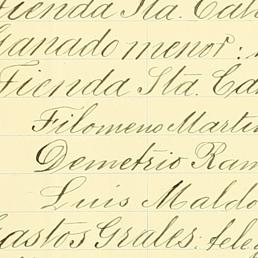 Tienda Sta. Cat
Ganado menor:
Tienda Sta. Ca
Filomeno Marti
Demetrio Ram
Luis Maldo
Gastos Grales: teleg